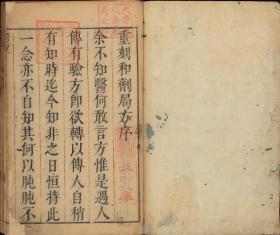 重刻和劑局方序
余不知醫何敢言方惟是遇人
傳有驗方即欲轉以傳人自稍
有知時迄今知非之日恒持此
一念亦不自知其何以肫肫不